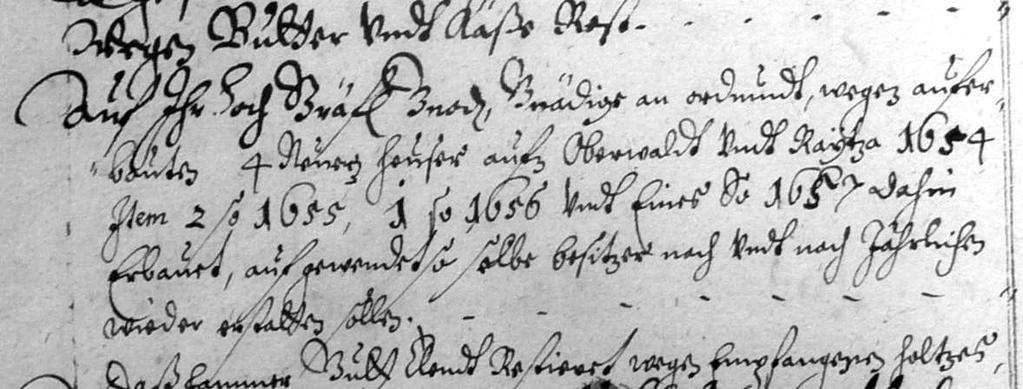 wegen Butter vndt Käße Rest.
Auf Ihr Hoch Gräfl Gnad, Gnädige an ordnundt, wegen aufer
bauten 4 Neuen heuser aufn Oberwaldt vndt Raytza 1654
Item 2 so 1655, 1 so 1656 vndt Eines So 1657 dahin
Erbauet, aufgewendet so selbe besitzer nach vndt nach Jährlichen
wieder erstatten sollen.
Daß Cammer Rendt Restieret wegen Empfangenen holtzes,